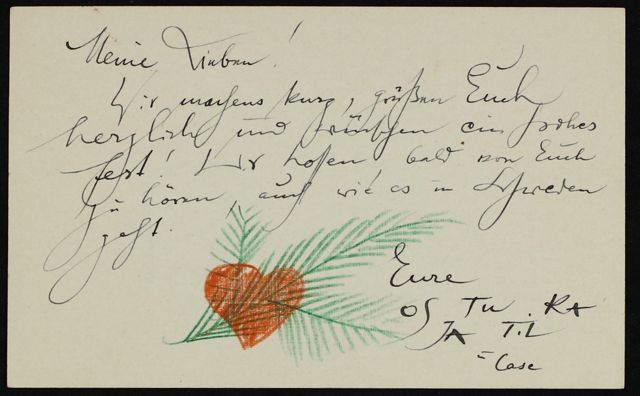 Meine Lieben!
Wir machens kurz, grüßen Euch
herzlich und wünschen ein frohes
Fest! Wir hoffen bald von Euch
zu hören, auch wie es in Schweden
geht.
Eure
OS TU. KA
JA TIL
Case